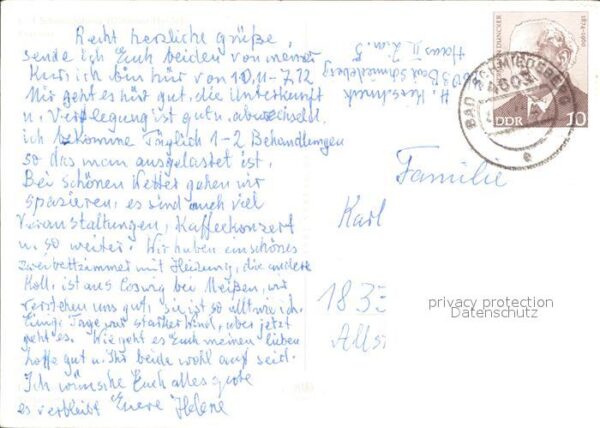 Recht herzliche grüße,
sende ich Euch beiden von meiner
Kur, ich bin hier von 10.11-7.12
Mir geht es hier gut, die Unterkunft
u. Verpflegung ist gut u.
ich bekomme Täglich 1-2 Behandlungen
so das man ausgelastet ist.
Bei schönen Wetter gehen wir
spazieren, es sind auch viel
Veranstaltungen, Kaffeekonzert
u. so weiter. Wir haben ein schönes
Zweibettzimmer mit Heizung, die andere
Koll. ist aus Coswig bei Meißen, wir
verstehen uns gut, sie ist so alt wie ich.
Einige Tage war starker Wind, aber jetzt
geht es. Wie geht es Euch meinen lieben
hoffe gut u. Ihr beide wohl auf seid.
Ich wünsche Euch alles gute
es verbleibt Euere Helene
H.
Haus II Z.
DUNCKER
1874-1960
DDR 10
BAD SCHMIEDEBERG
4603
e
Familie
Karl
183
Alls
privacy protection
Datenschutz